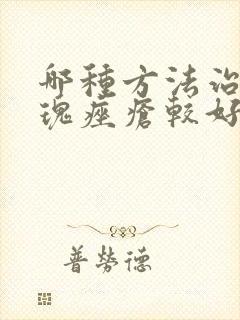 哪種方法治
瑰痤瘡較好
普勞德